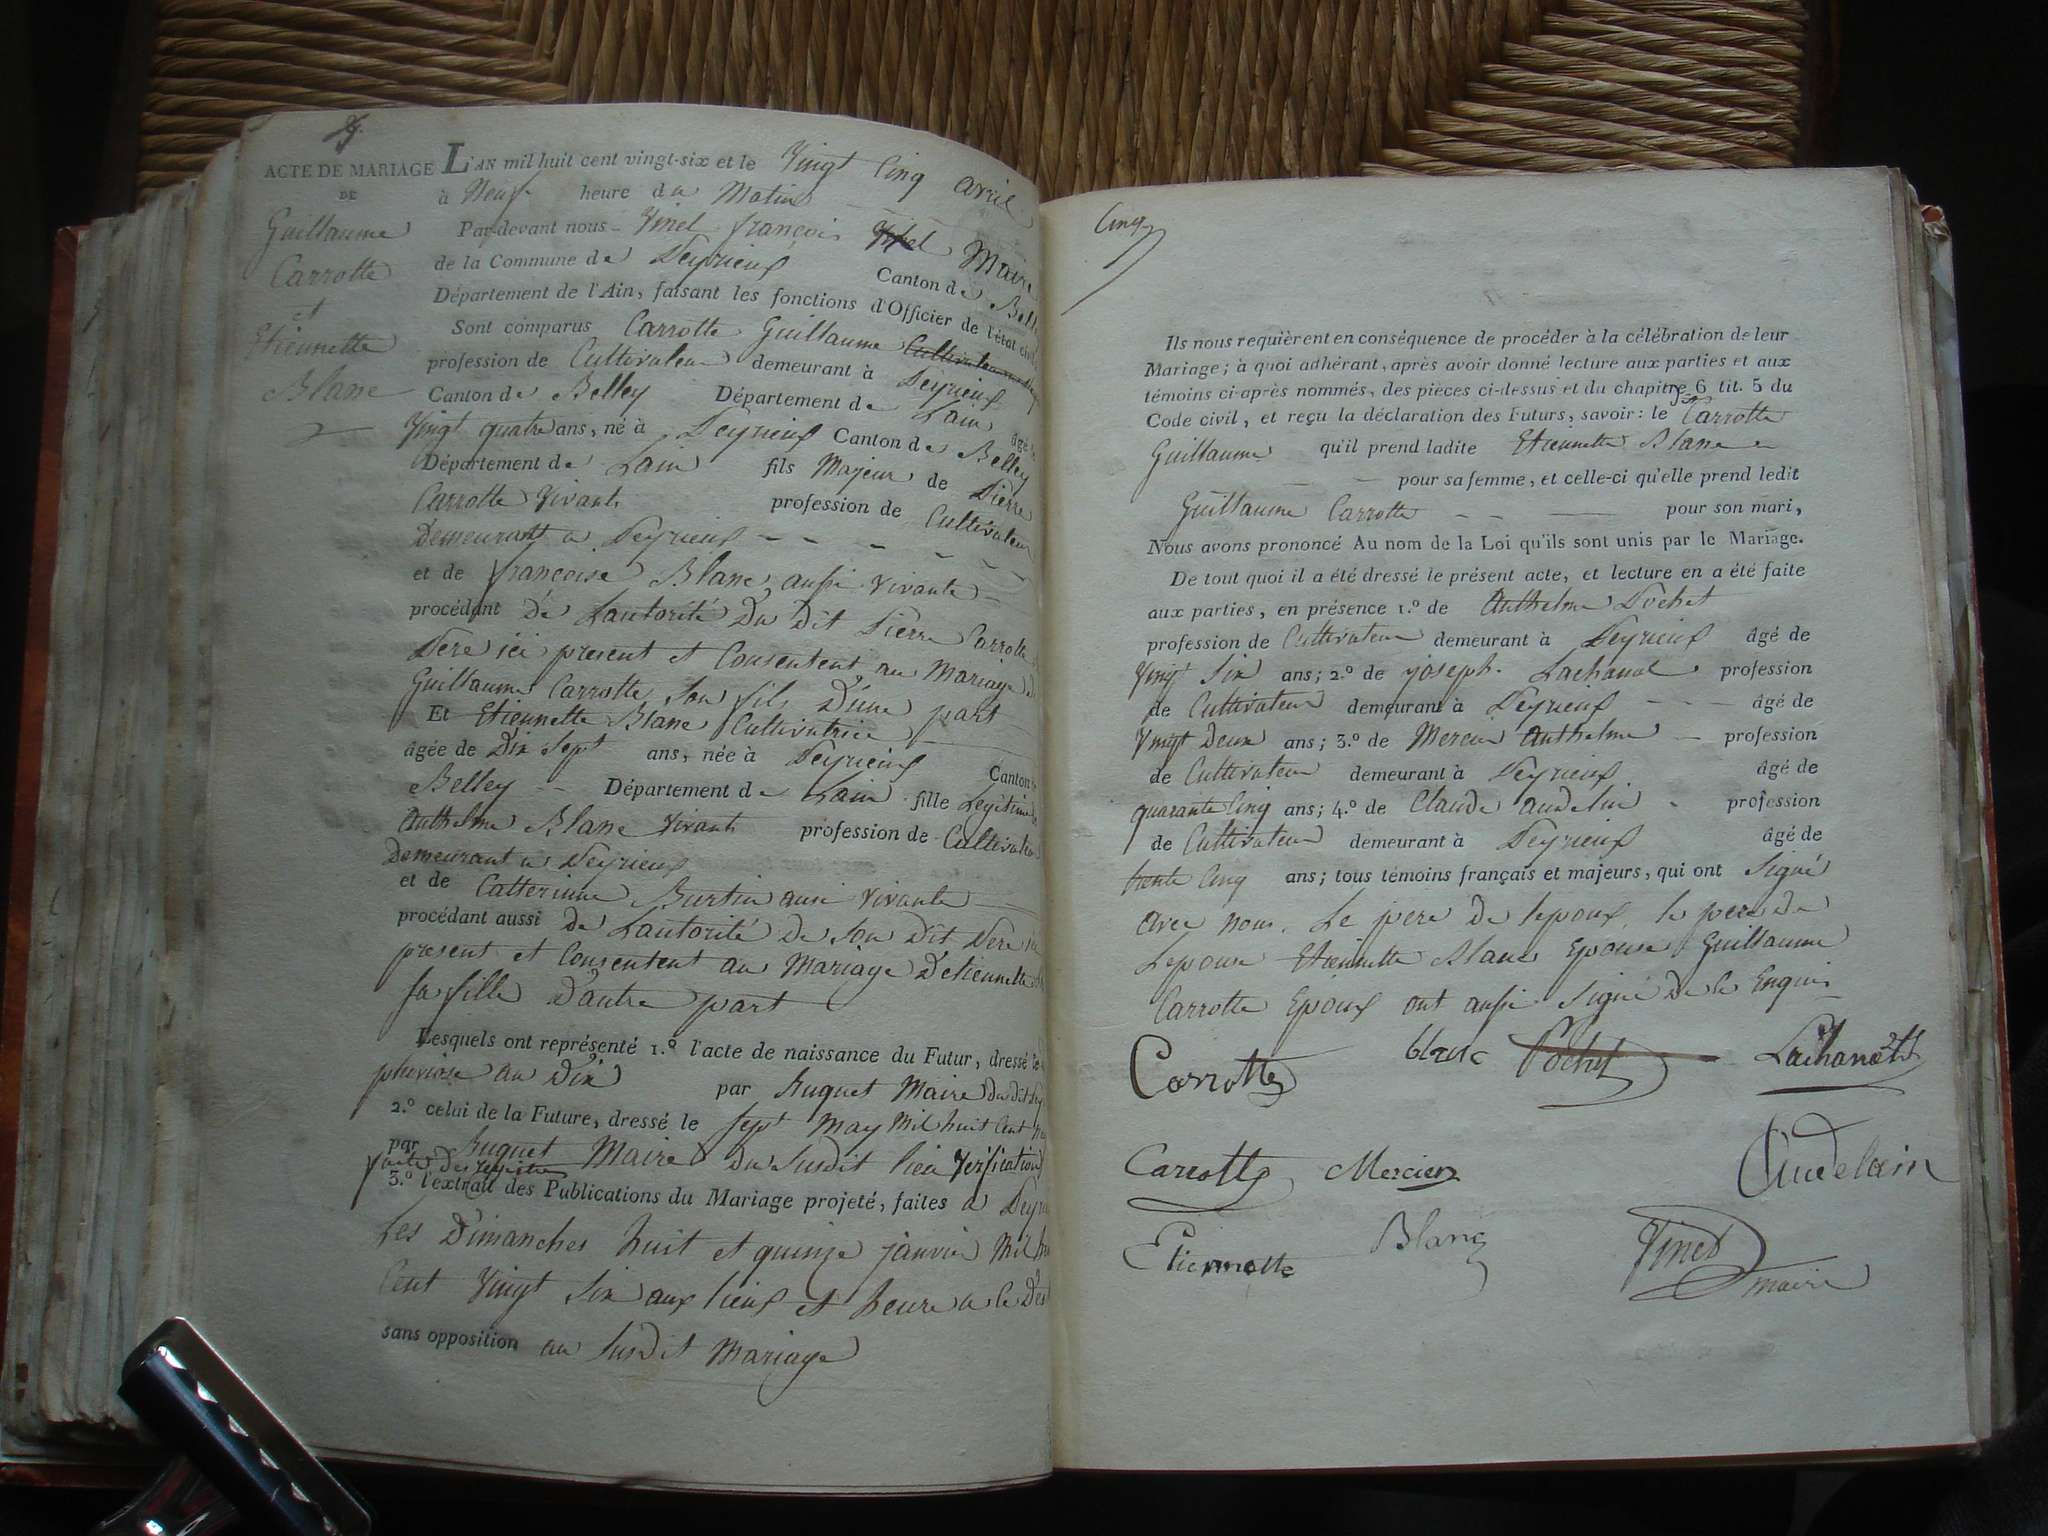 ACTE DE MARIAGE
DE
Guillaume
Carrotte
et
Etiennette
Blanc
L'AN mil huit cent vingt-six et le Vingt Cinq avril
à Neuf heure du Matin
Par-devant nous Vinel françois Maire
de la Commune de Peyrieux Canton de Bell
Département de l'Ain, faisant les fonctions d'Officier de l'état civil
Sont comparus Carrotte Guillaume
profession de Cultivateur demeurant à Peyrieux
Canton de Belley Département de Lain âgé
Vingt quatre ans, né à Peyrieux Canton de Belley
Département de Lain fils Majeur de Pierre
Carrotte Vivant profession de Cultivateur
Demeurant a Peyrieux
et de françoise Blanc aussi vivante
procédant de Lautorité Du Dit Pierre Carrotte
Pere ici present et Consentent au Mariage de
Guillaume Carrotte Son fils D'une part
Et Etiennette Blanc Cultivatrice
âgée de Dix Sept ans, née à Peyrieux Canton
Belley Département de Lain fille Legitime
Anthelme Blanc Vivant profession de Cultivateur
Demeurant a Peyrieux
et de Catterinne Burtin aussi vivante
procédant aussi de Lautorité de Son Dit Pere ici
present et Consentent au Mariage D'etiennette
Sa fille D'autre part
Lesquels ont représenté 1.º l'acte de naissance du Futur, dressé le
pluviose an Dix par Huguet Maire du dit
2.º celui de la Future, dressé le Sept May Mil huit Cent
par Huguet Maire du Susdit lieu Verification
faite des registres
3.º l'extrait des Publications du Mariage projeté, faites a Peyri
Les Dimanches huit et quinze janvier Mil hu
Cent Vingt Six aux lieux et heure a ce Des
sans opposition au Susdit Mariage
Cinq
Ils nous requièrent en conséquence de procéder à la célébration de leur
Mariage; à quoi adhérant, après avoir donné lecture aux parties et aux
témoins ci-après nommés, des pièces ci-dessus et du chapitre 6 tit. 5 du
Code civil, et reçu la déclaration des Futurs, savoir: le Carrotte
Guillaume qu'il prend ladite Etiennette Blanc
pour sa femme, et celle-ci qu'elle prend ledit
Guillaume Carrotte pour son mari,
Nous avons prononcé Au nom de la Loi qu'ils sont unis par le Mariage.
De tout quoi il a été dressé le présent acte, et lecture en a été faite
aux parties, en présence 1.º de Anthelme Pochet
profession de Cultivateur demeurant à Peyrieux âgé de
Vingt Six ans; 2.º de joseph Lachanal profession
de Cultivateur demeurant à Peyrieux âgé de
Vingt Deux ans; 3.º de Mercier Anthelme profession
de Cultivateur demeurant à Peyrieux âgé de
quarante Cinq ans; 4.º de Claude audelin profession
de Cultivateur demeurant à Peyrieux âgé de
trente Cinq ans; tous témoins français et majeurs, qui ont Signé
avec nous. Le pere de lepoux, le pere de
Lepouse Etiennette Blanc Epouse Guillaume
Carrotte Epoux ont aussi Signé de ce Enquis
Carrotte blanc Pochet
Carrotte Mercier Audelain
Etiennette Blanc Vinel
maire